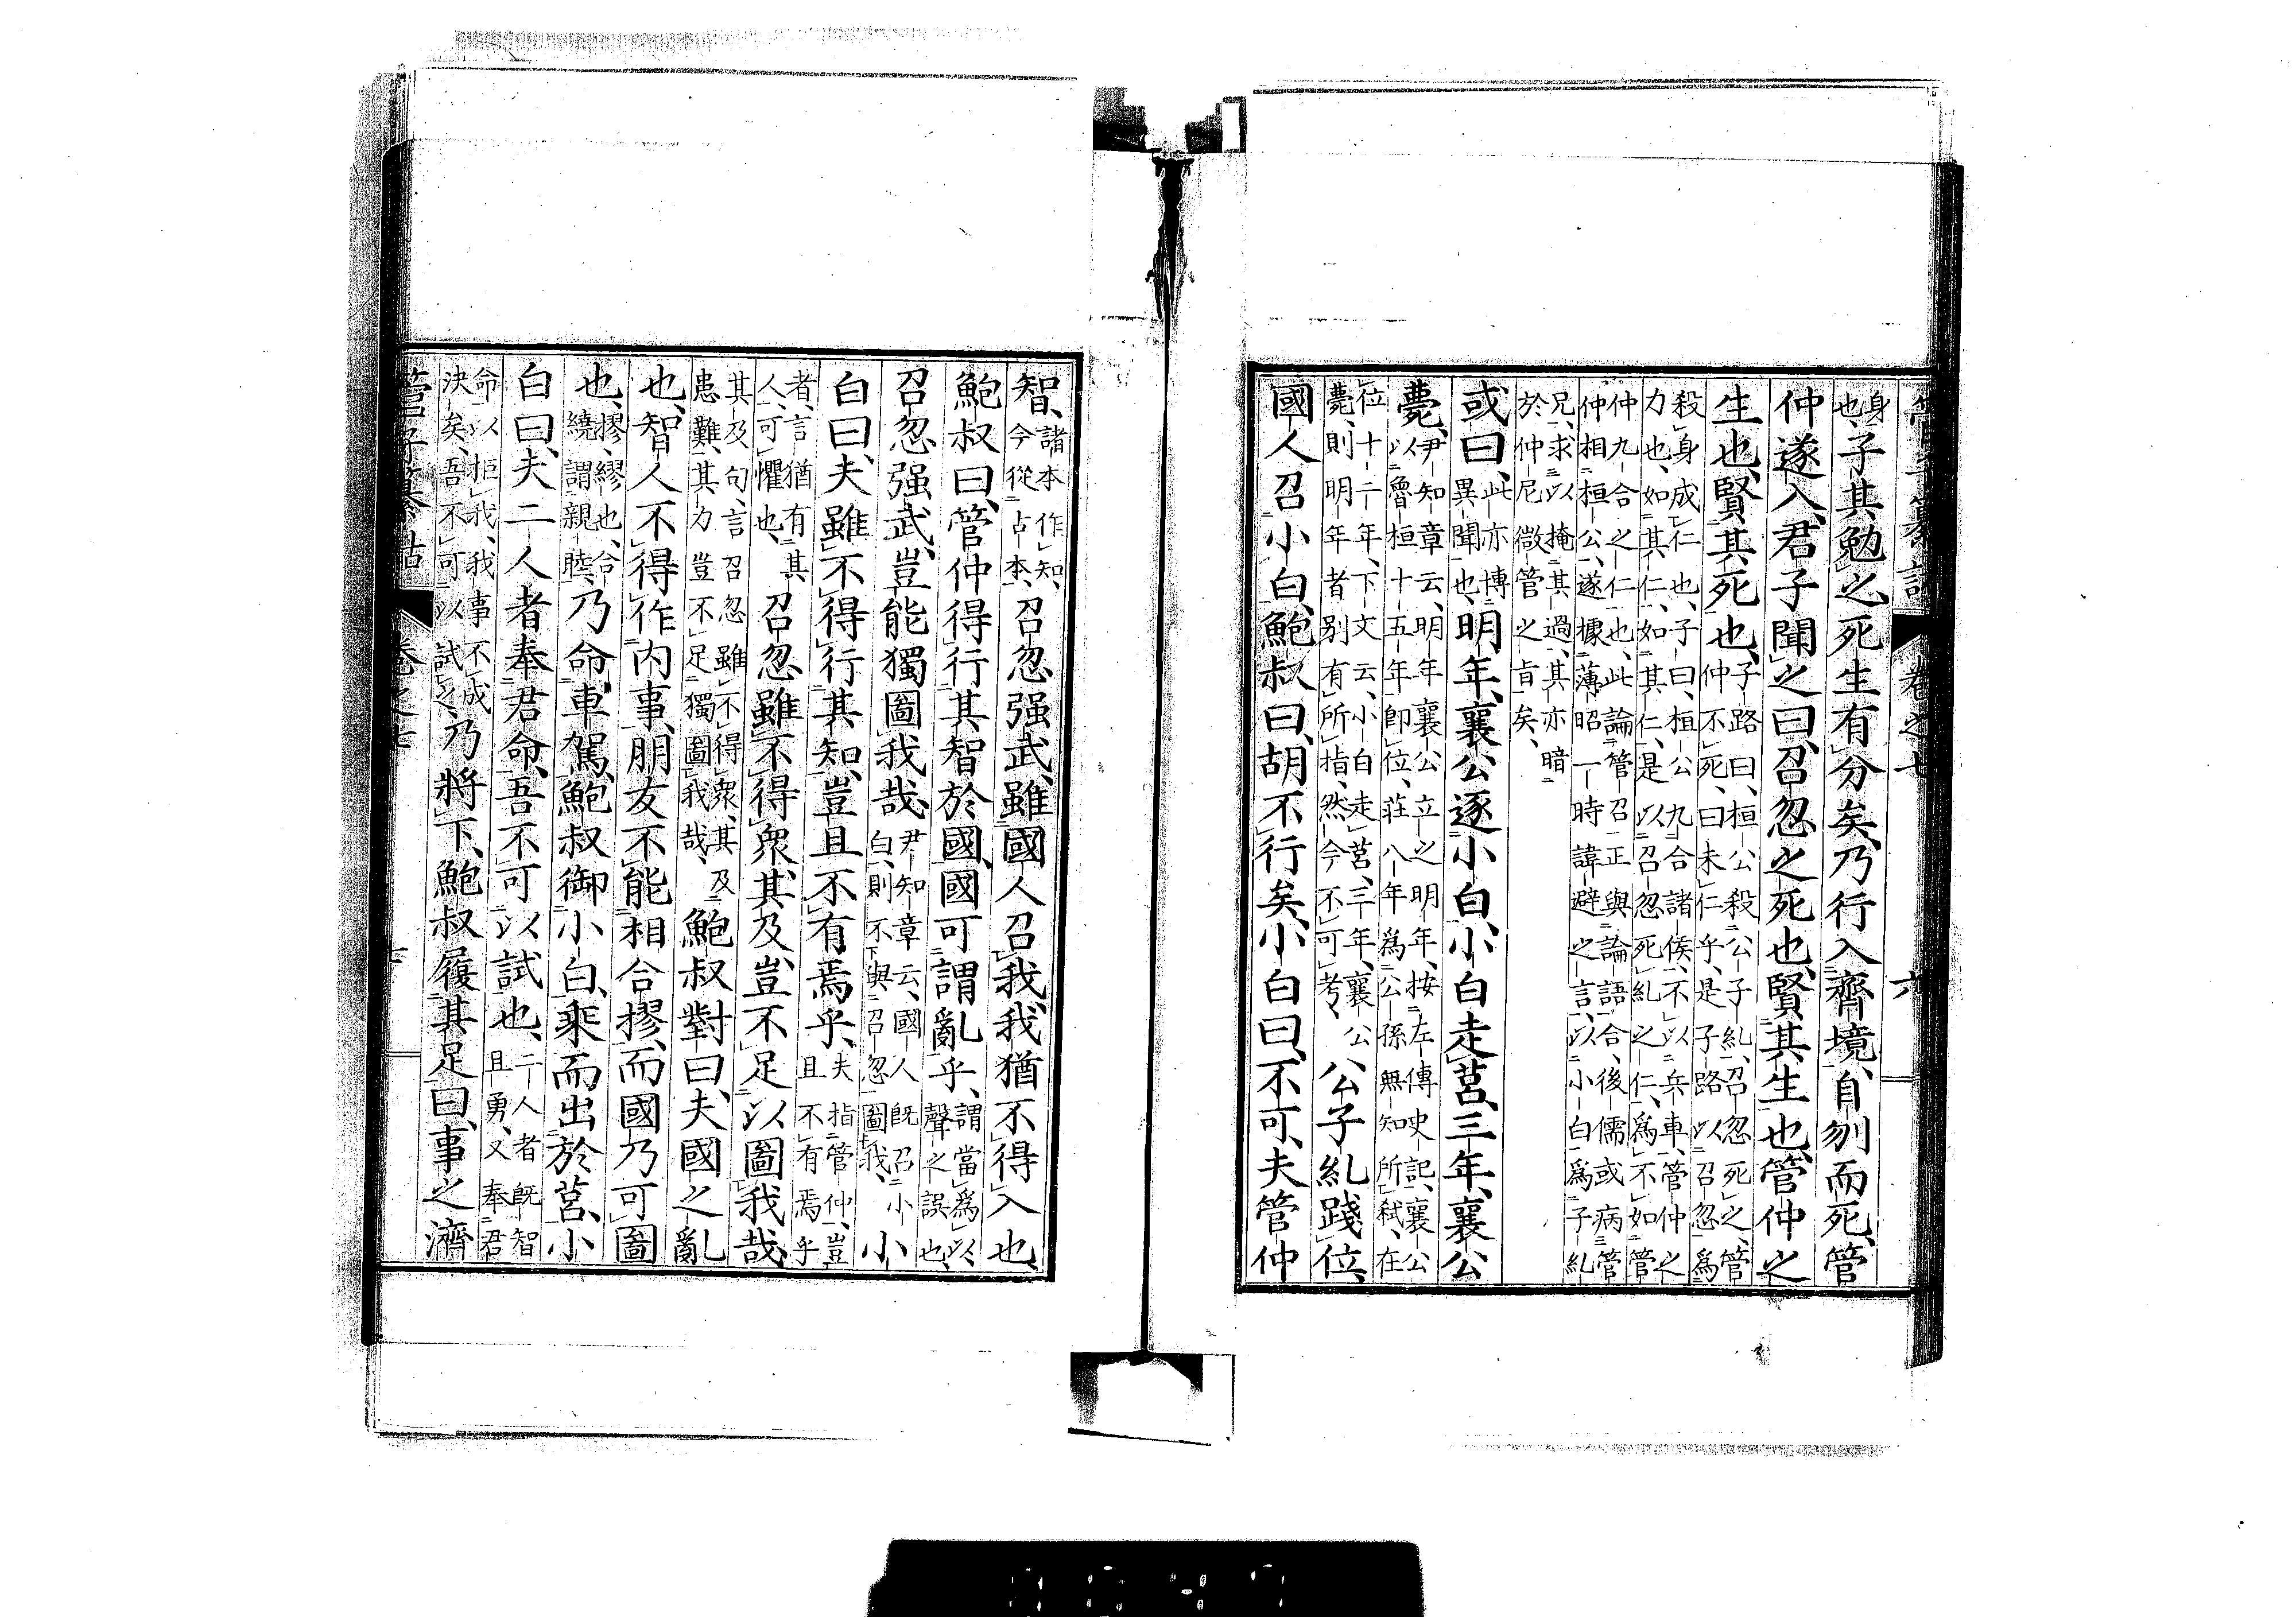 管子纂詁 卷之七 六
身也、子其勉之、死生有分矣、乃行入齊境、自刎而死、管
仲遂入、君子聞之曰、召忽之死也、賢其生也、管仲之
生也、賢其死也、子路曰、桓公殺公子糾、召忽死之、管仲不死、曰未仁乎、是子路以召忽爲
殺身成仁也、子曰、桓公九合諸侯、不以兵車、管仲之力也、如其仁、如其仁、是以召忽死糾之仁、爲不如管
仲九合之仁也、此論管召正與論語合、後儒或病管仲相桓公、遂據薄昭一時諱避之言、以小白爲子糾
兄、求以掩其過、其亦暗於仲尼微管之旨矣、
或曰、此亦博異聞也、明年、襄公逐小白、小白走莒、三年、襄公
薨、尹知章云、明年襄公立之明年、按左傳史記、襄公以魯桓十五年卽位、莊八年爲公孫無知所弑、在
位十二年、下文云、小白走莒、三年、襄公薨、則明年者別有所指、然今不可考、公子糾踐位、
國人召小白、鮑叔曰、胡不行矣、小白曰、不可、夫管仲
智、諸本作知、今從古本、召忽强武、雖國人召我、我猶不得入也、
鮑叔曰、管仲得行其智於國、國可謂亂乎、謂當爲以、聲之誤也、
召忽强武、豈能獨圖我哉、尹知章云、國人旣召小白、則不與召忽圖我、小
白曰、夫雖不得行其知、豈且不有焉乎、夫指管仲、豈且不有焉乎
者、言猶有其人、可懼也、召忽雖不得衆、其及豈不足以圖我哉、
其及句、言召忽雖不得衆、其及患難、其力豈不足獨圖我哉、鮑叔對曰、夫國之亂
也、智人不得作內事、朋友不能相合摎、而國乃可圖
也、摎、繆也、合繞謂親睦、乃命車駕、鮑叔御小白、乘而出於莒、小
白曰、夫二人者奉君命、吾不可以試也、二人者旣智且勇、又奉君
命以拒我、我事不成決矣、吾不可以試之、乃將下、鮑叔履其足曰、事之濟
管子纂詁 卷之七 七